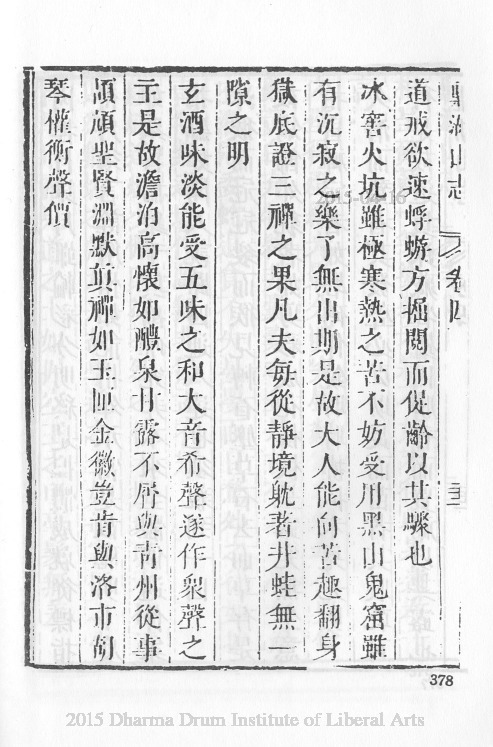 山志 卷四
道戒欲速蜉蝣方掘閱而促齡以其驟也
冰窖火坑雖極寒熱之苦不妨受用黑山鬼窟雖
有沉寂之樂了無出期是故大人能向苦趣翻身
獄底證三禪之果凡夫每從靜境躭著井蛙無一
隙之明
玄酒味淡能受五味之和大音希聲遂作衆聲之
主是故澹泊高懷如醴泉甘露不屑與青州從事
頡頏聖賢淵默真禪如玉匣金徽豈肯與洛市胡
琴權衡聲價
378
2015-04-16
2015 Dharma Drum Institute of Liberal Arts